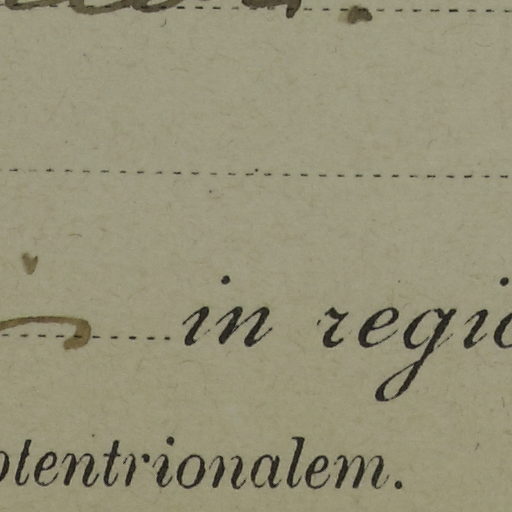 in regio
ptentrionalem.